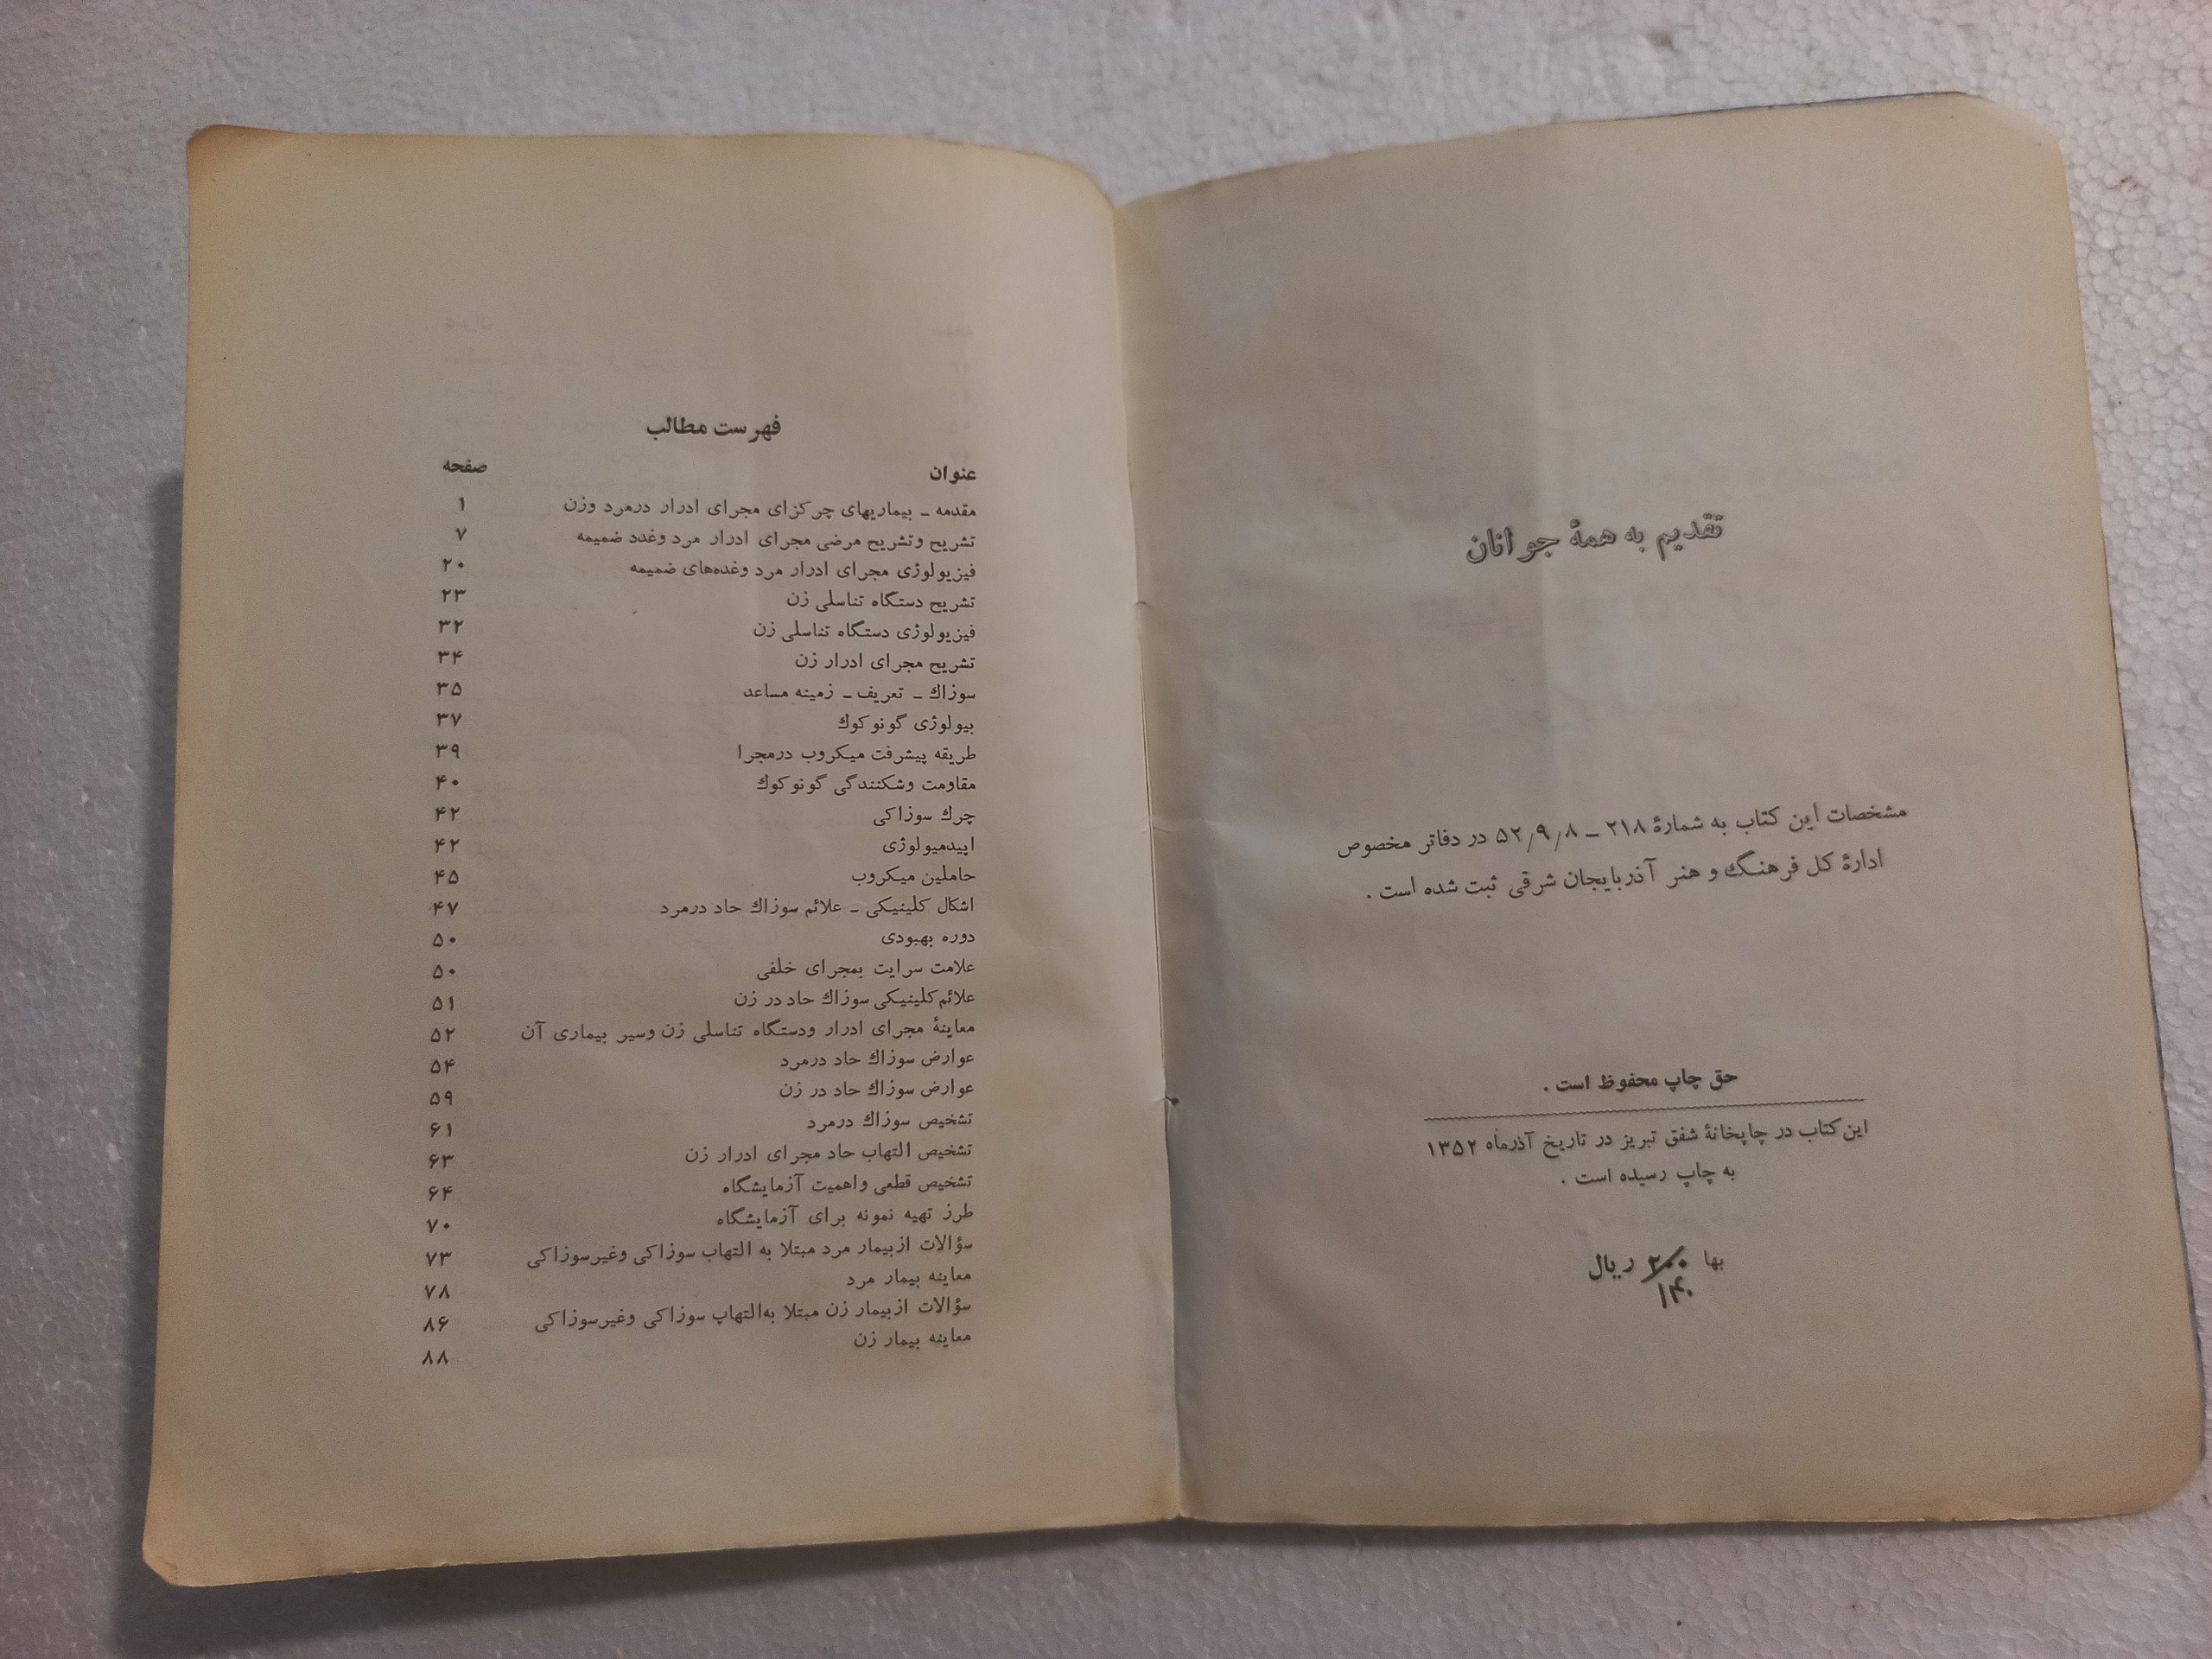 تقدیم به همهٔ جوانان
مشخصات این کتاب به شمارهٔ ۲۱۸ ــ ۵۲/۹/۸ در دفاتر مخصوص
ادارهٔ کل فرهنگ و هنر آذربایجان شرقی ثبت شده است .
حق چاپ محفوظ است .
این کتاب در چاپخانهٔ شفق تبریز در تاریخ آذرماه ۱۳۵۲
به چاپ رسیده است .
بها ۲۰۰ ریال
۱۴۰
فهرست مطالب
عنوان صفحه
مقدمه ــ بیماریهای چرکزای مجرای ادرار درمرد وزن ۱
تشریح وتشریح مرضی مجرای ادرار مرد وغدد ضمیمه ۷
فیزیولوژی مجرای ادرار مرد وغده‌های ضمیمه ۲۰
تشریح دستگاه تناسلی زن ۲۳
فیزیولوژی دستگاه تناسلی زن ۳۲
تشریح مجرای ادرار زن ۳۴
سوزاك ــ تعریف ــ زمینه مساعد ۳۵
بیولوژی گونوکوك ۳۷
طریقه پیشرفت میکروب درمجرا ۳۹
مقاومت وشکنندگی گونوکوك ۴۰
چرك سوزاکی ۴۲
اپیدمیولوژی ۴۲
حاملین میکروب ۴۵
اشکال کلینیکی ــ علائم سوزاك حاد درمرد ۴۷
دوره بهبودی ۵۰
علامت سرایت بمجرای خلفی ۵۰
علائم کلینیکی سوزاك حاد در زن ۵۱
معاینهٔ مجرای ادرار ودستگاه تناسلی زن وسیر بیماری آن ۵۲
عوارض سوزاك حاد درمرد ۵۴
عوارض سوزاك حاد در زن ۵۹
تشخیص سوزاك درمرد ۶۱
تشخیص التهاب حاد مجرای ادرار زن ۶۳
تشخیص قطعی واهمیت آزمایشگاه ۶۴
طرز تهیه نمونه برای آزمایشگاه ۷۰
سؤالات ازبیمار مرد مبتلا به التهاب سوزاکی وغیرسوزاکی ۷۳
معاینه بیمار مرد ۷۸
سؤالات ازبیمار زن مبتلا به‌التهاپ سوزاکی وغیرسوزاکی ۸۶
معاینه بیمار زن ۸۸